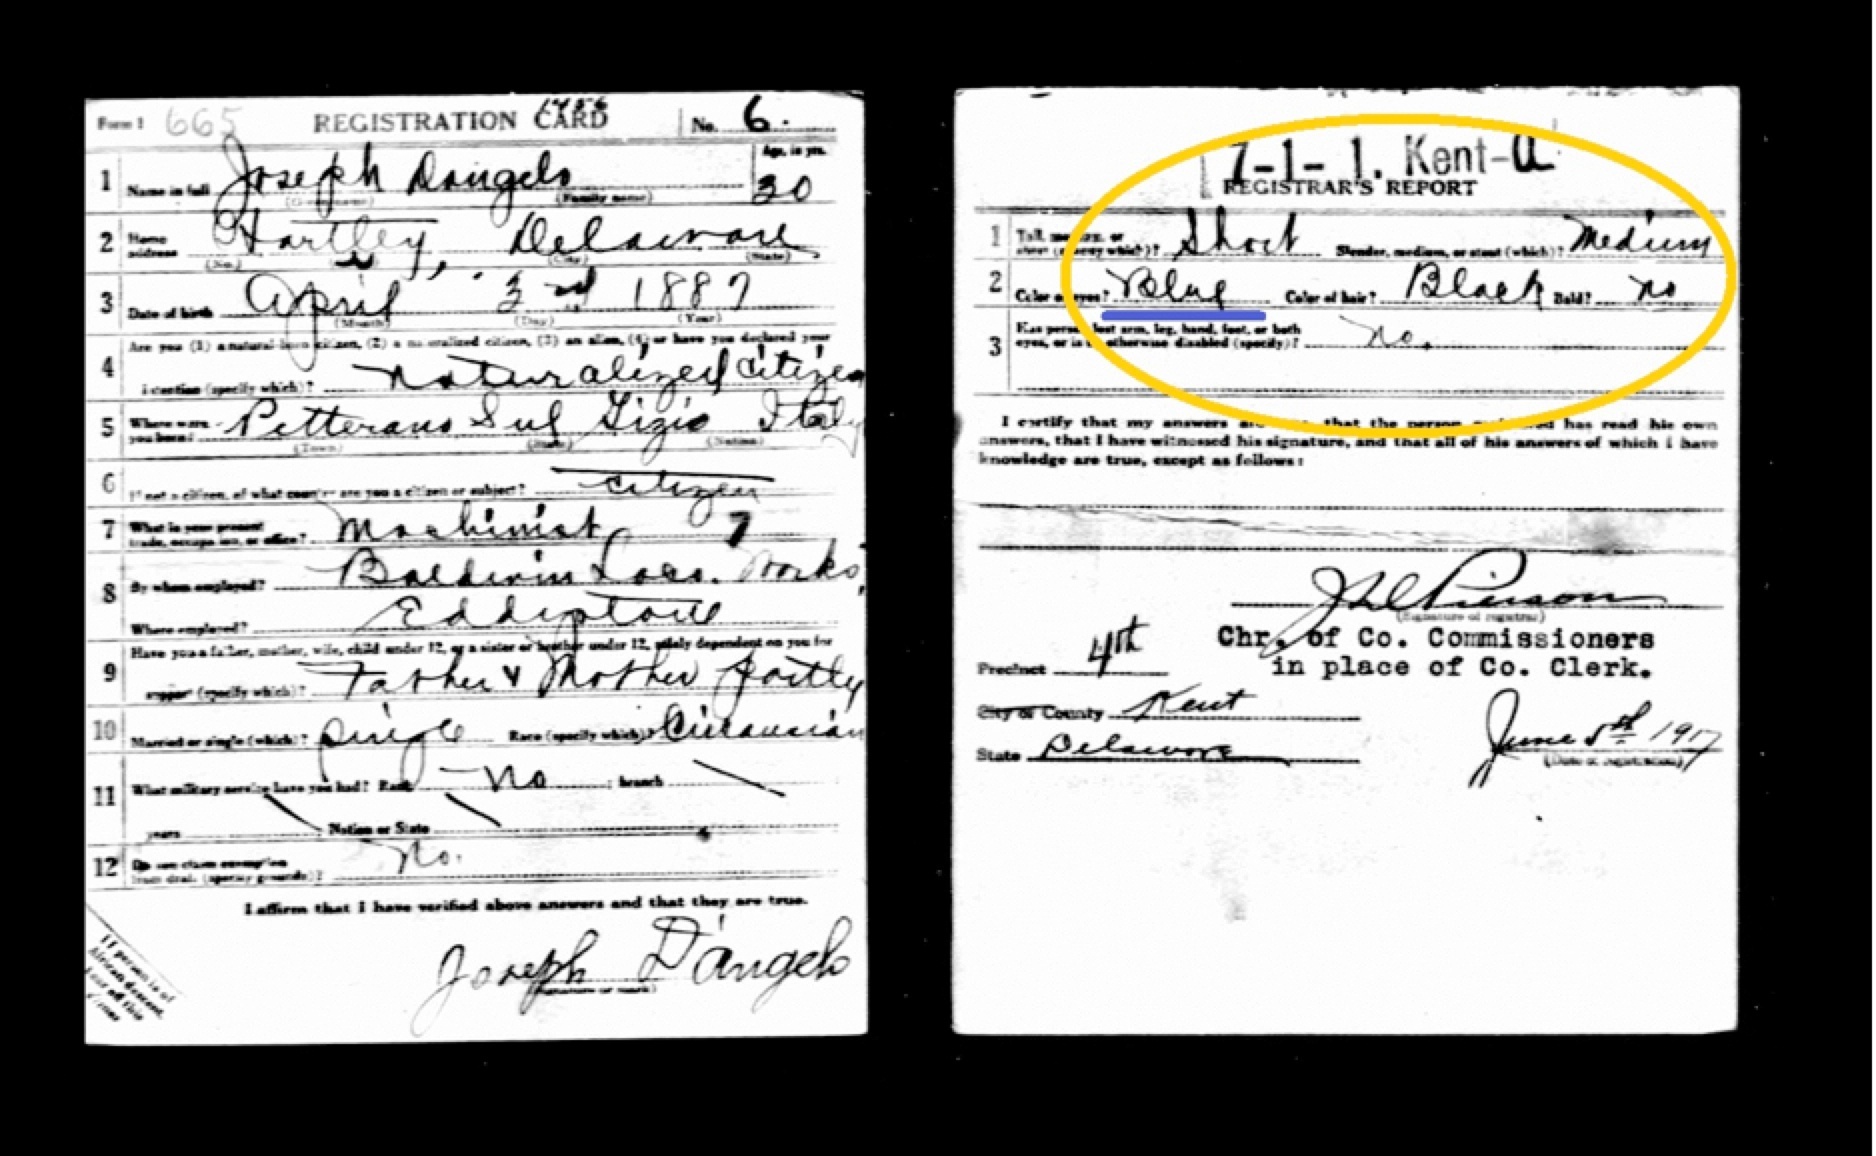 Form 1 665 REGISTRATION CARD 1756 No. 6.
1 Name in full Joseph Dangelo Age, in yrs. 30
(Given name) (Family name)
2 Home address Hartley, Delaware
(No.) (City) (State)
3 Date of birth April 3rd 1887
(Month) (Day) (Year)
Are you (1) a natural-born citizen, (2) a naturalized citizen, (3) an alien, (4) or have you declared your
4 intention (specify which)? naturalized citizen
5 Where were you born? Petterano Sul Gizio Italy
(Town) (State) (Nation)
6 If not a citizen, of what country are you a citizen or subject? citizen
7 What is your present trade, occupation, or office? Machinist 7
8 By whom employed? Baldwin Loco. Works,
Where employed? Eddystone
Have you a father, mother, wife, child under 12, or a sister or brother under 12, solely dependent on you for
9 support (specify which)? Father & Mother partly
10 Married or single (which)? single Race (specify which)? Caucausian
11 What military service have you had? Rank no ; branch
years Nation or State
12 Do you claim exemption from draft (specify grounds)? No.
I affirm that I have verified above answers and that they are true.
Joseph D'Angelo
(Signature or mark)
If person is of
African descent,
corner
7-1-1. Kent-A
REGISTRAR'S REPORT
1 Tall, medium, or short (specify which)? Short Slender, medium, or stout (which)? Medium
2 Color of eyes? Blue Color of hair? Black Bald? no
3 Has person lost arm, leg, hand, foot, or both eyes, or is he otherwise disabled (specify)? No.
I certify that my answers are true, that the person registered has read his own
answers, that I have witnessed his signature, and that all of his answers of which I have
knowledge are true, except as follows:
Pierson
(Signature of registrar)
Chr. of Co. Commissioners
in place of Co. Clerk.
Precinct 4th
City or County Kent
State Delaware
June 5th 1917
(Date of registration)